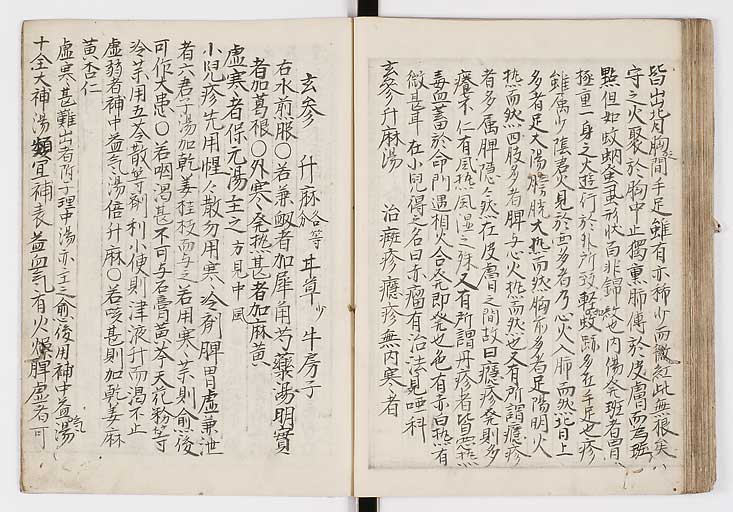 皆出背胸間手足雖有亦稀少而微紅此無根失
守之火聚於胸中上獨熏肺傳於皮膚而為班
點但如蚊蚋蚤虱形状而非錦紋也内傷発班者胃
極重一身之火遊行於外所致軽如蚊跡多在手足也疹
雖属少陰君火見於面多者乃心火入肺而然背上
多者足太陽膀胱大熱而然胸前多者足陽明火
熱而然四肢多者脾与心火熱而然也又有所謂癮疹
者多属脾隱々然在皮膚之間故曰癮疹発則多
癢不仁有風熱風湿之殊又有所謂丹疹者皆悪熱
毒血蓄於命門遇相火合発即発也色有赤白熱有
微甚耳在小児得之名曰赤瘤有治法見唖科
玄參升麻湯 治癍疹癮疹無内寒者
玄參 升麻各等分 甘草少 牛房子
右水煎服〇若兼衂者加犀角芍藥湯明實
者加葛根〇外寒発熱甚者加麻黄
虚寒者保元湯主之 方見中風
小児疹先用惺々散勿用寒冷剤脾胃虚兼泄
者六君子湯加乾姜桂枝而与之若用寒々薬則愈後
可作大患〇若咽渇甚不可与石膏黄芩天花粉等
冷薬用五苓散等剤利小便則津液升而渇不止
虚弱者補中益気湯倍升麻〇若咳甚則加乾姜麻
黄杏仁
虚寒甚難出者附子理中湯亦主之愈後用補中益気湯
十全大補湯類宜補表益血気有火燥脾虚者可